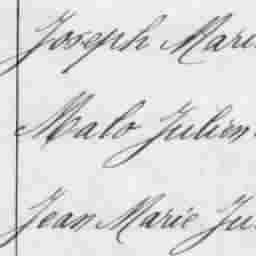 Joseph Mari
Malo Julien
Jean Marie Ju